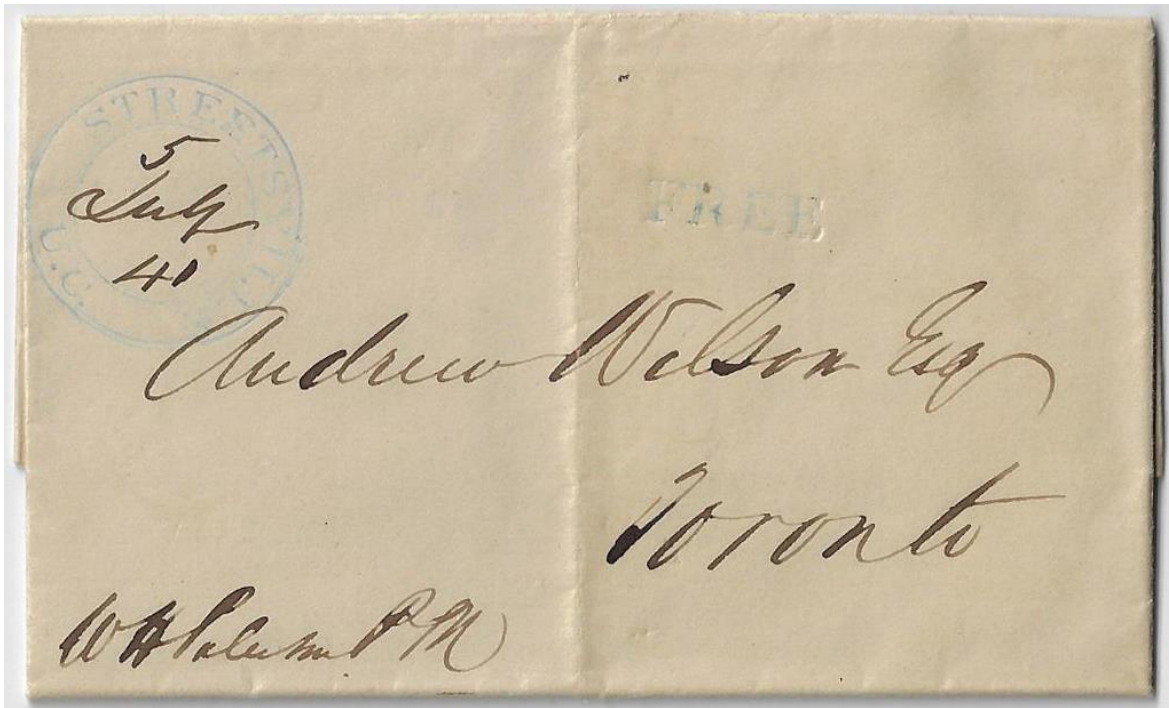 STREETSVILLE
U.C.
5
July
41
FREE
Andrew Wilson Esq
Toronto
W H Paterson P M